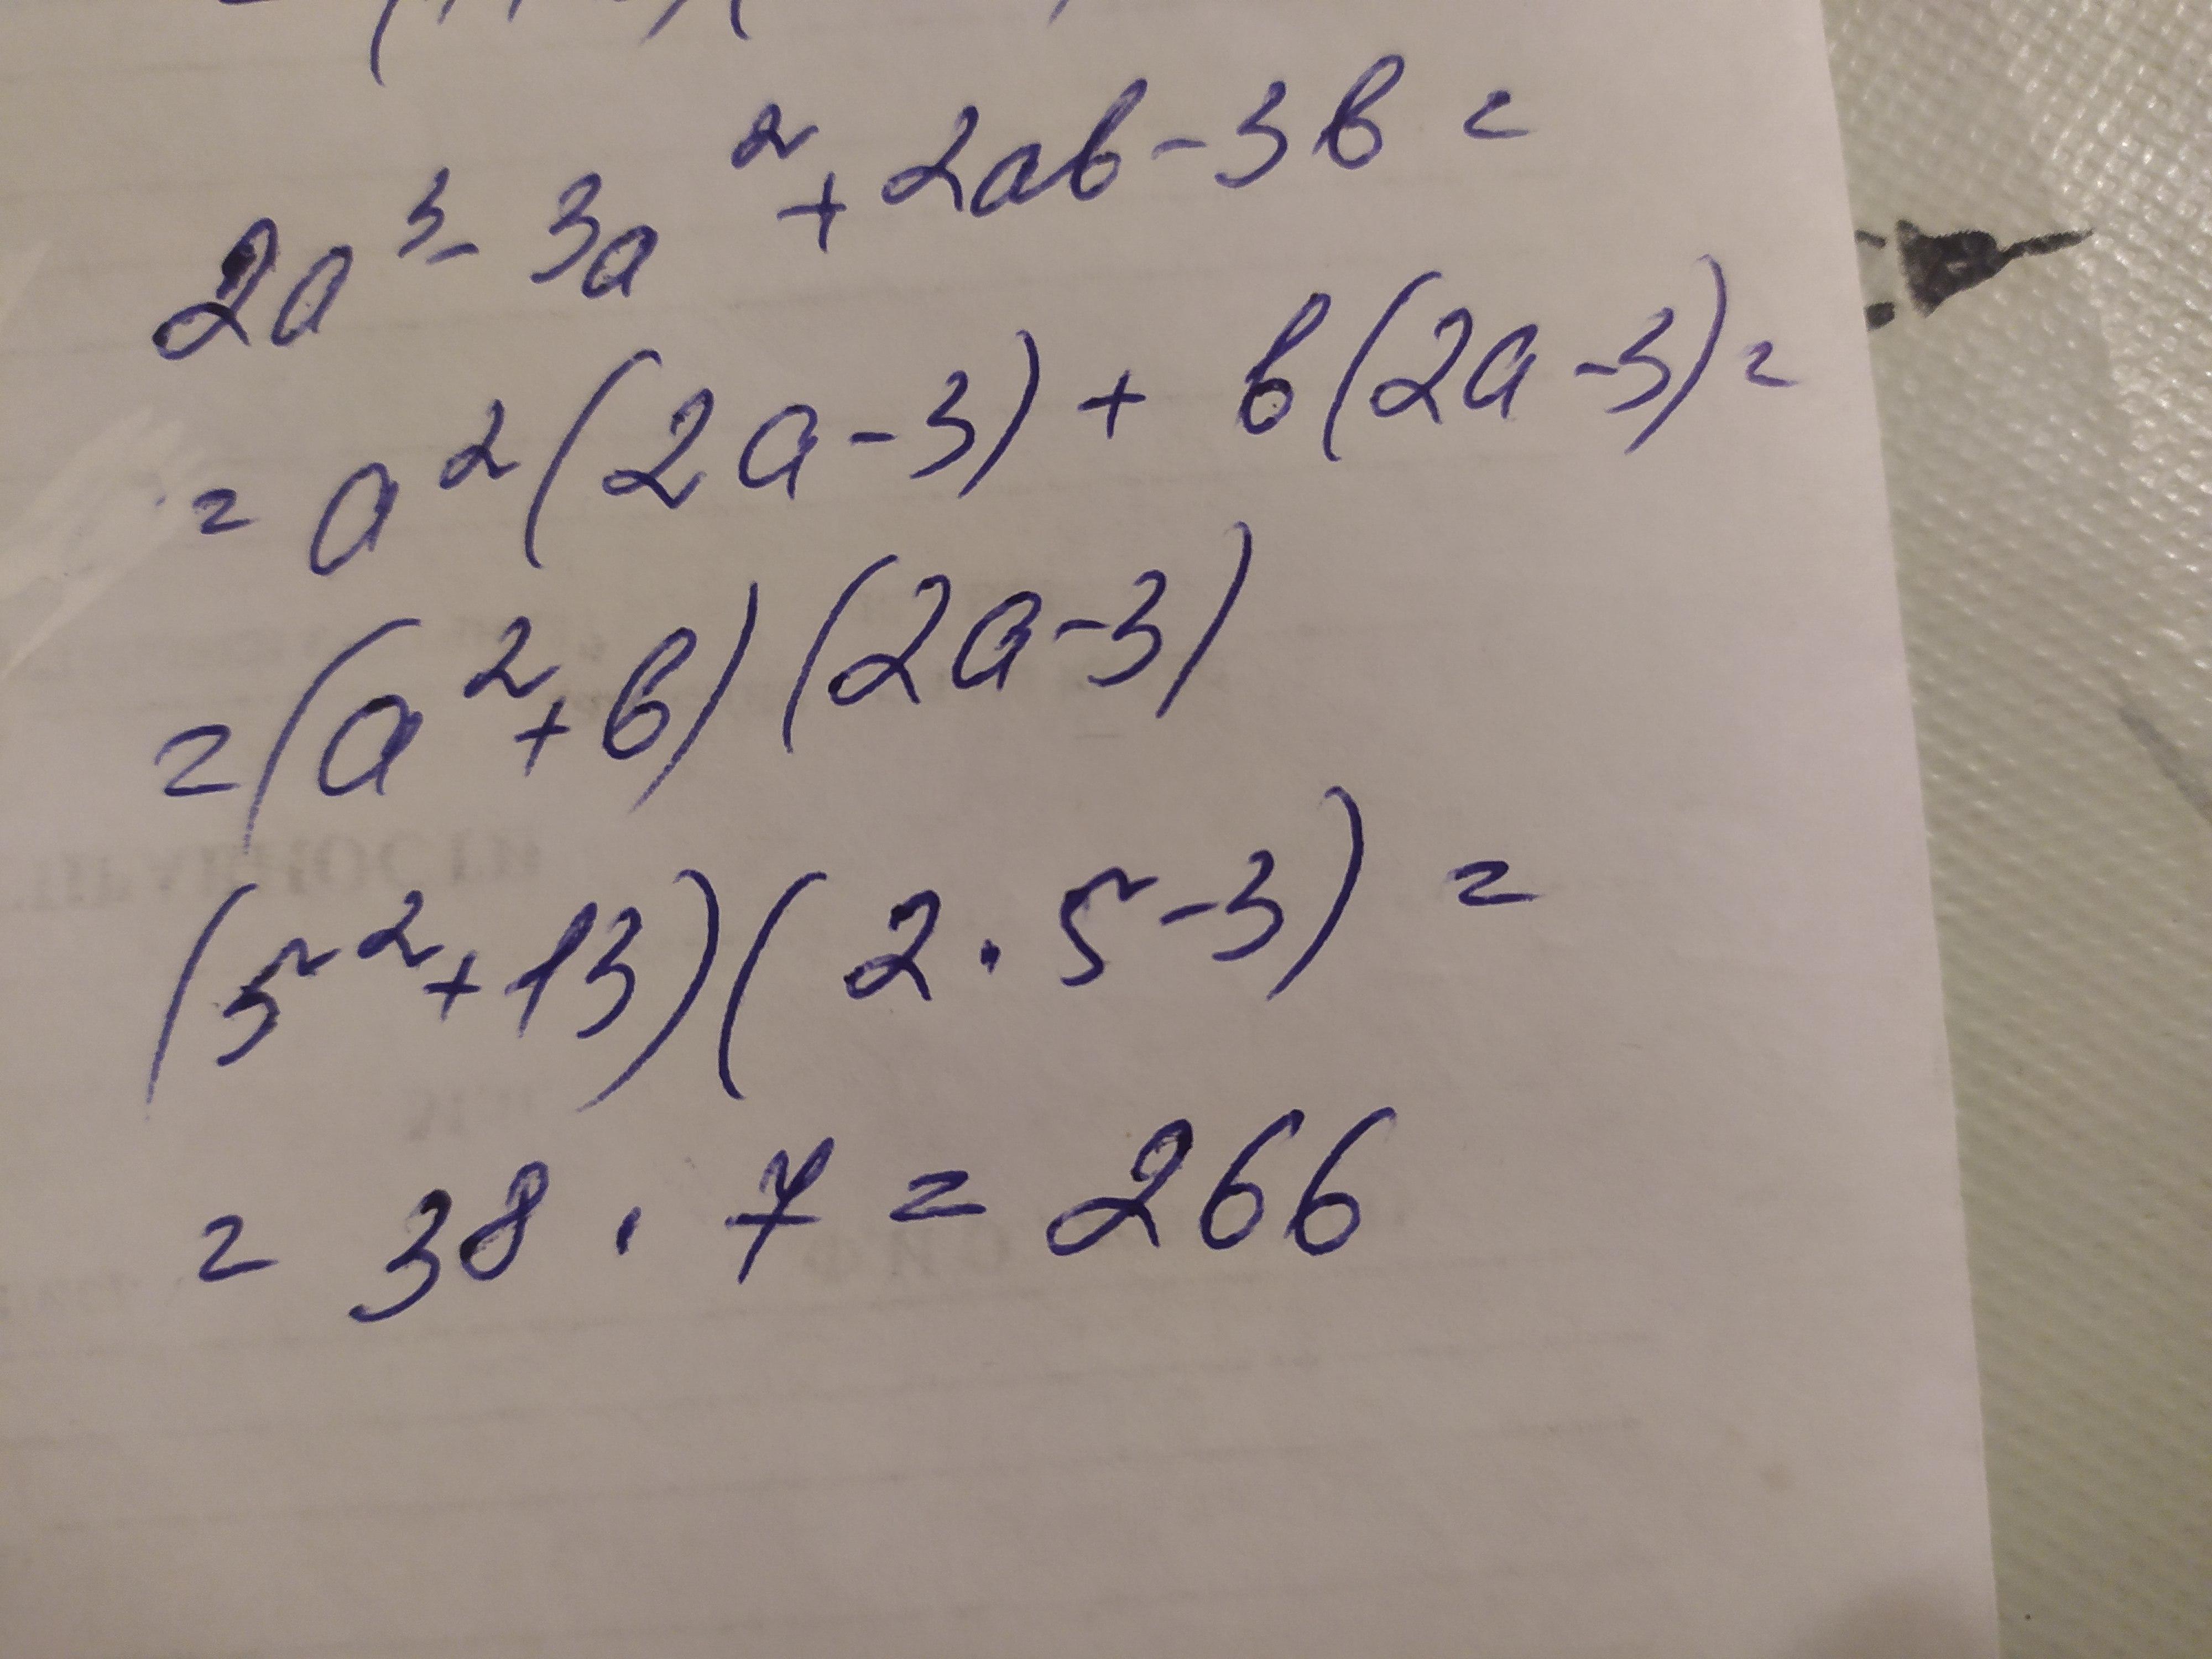 2a³ - 3a² + 2ab - 3b =
= a²(2a - 3) + b(2a - 3) =
= (a² + b)(2a - 3)
(5² + 13)(2 · 5 - 3) =
= 38 · 7 = 266